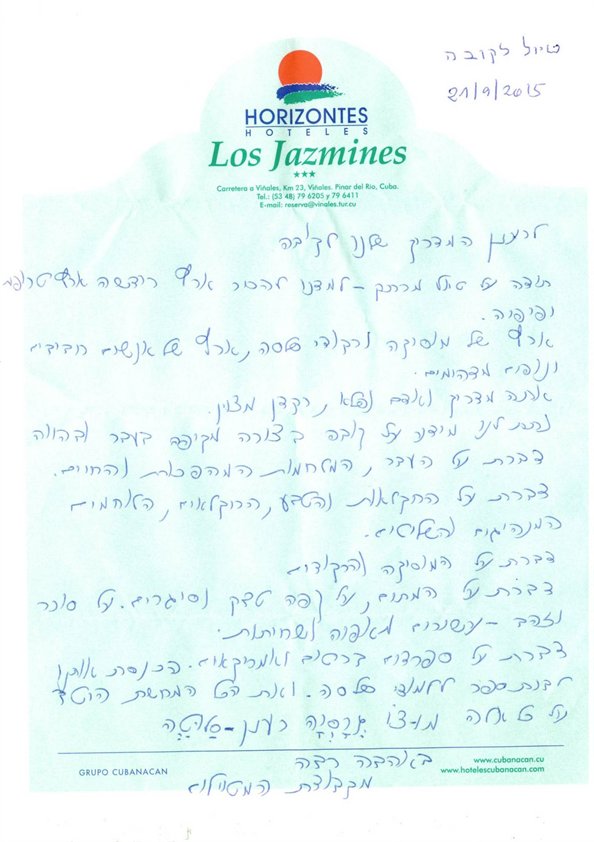 טיול לקובה
21/9/2015
HORIZONTES
HOTELES
Los Jazmines
Carretera a Viñales, Km 23, Viñales. Pinar del Río, Cuba.
Tel.: (53 48) 79 6205 y 79 6411
E-mail: reserva@vinales.tur.cu
לרענן המדריך שלנו לקובה
תודה על טיול מרתק - למדנו להכיר ארץ חדשה ארץ טרופית
ויפיפיה.
ארץ של מוסיקה ורקודי סלסה, ארץ של אנשים חביבים
ונופים מדהימים.
אתה מדריך ואדם נפלא, רקדן מצוין.
נתת לנו מידע על קובה בצורה מקיפה בעבר ובהווה
דברת על העבר, המלחמות המהפכות והחיים.
דברת על החקלאות והטבע, החקלאים, הלוחמים
המנהיגים והשליטים.
דברת על המוסיקה והרקודים
דברת על המתים, על קפה טבק וסיגרים. על סוכר
וזהב - עשירים מאפיה ושחיתות.
דברת על ספרדים בריטים ואמריקאים. הכנסת אותנו
לבית ספר ללמודי סלסה. ואת הכל המחשת היטב
על כל אלה מוצ'ו גרסיה רענן - סלוטה
באהבה רבה
מקבוצת המטיילים
GRUPO CUBANACAN
www.cubanacan.cu
www.hotelescubanacan.com